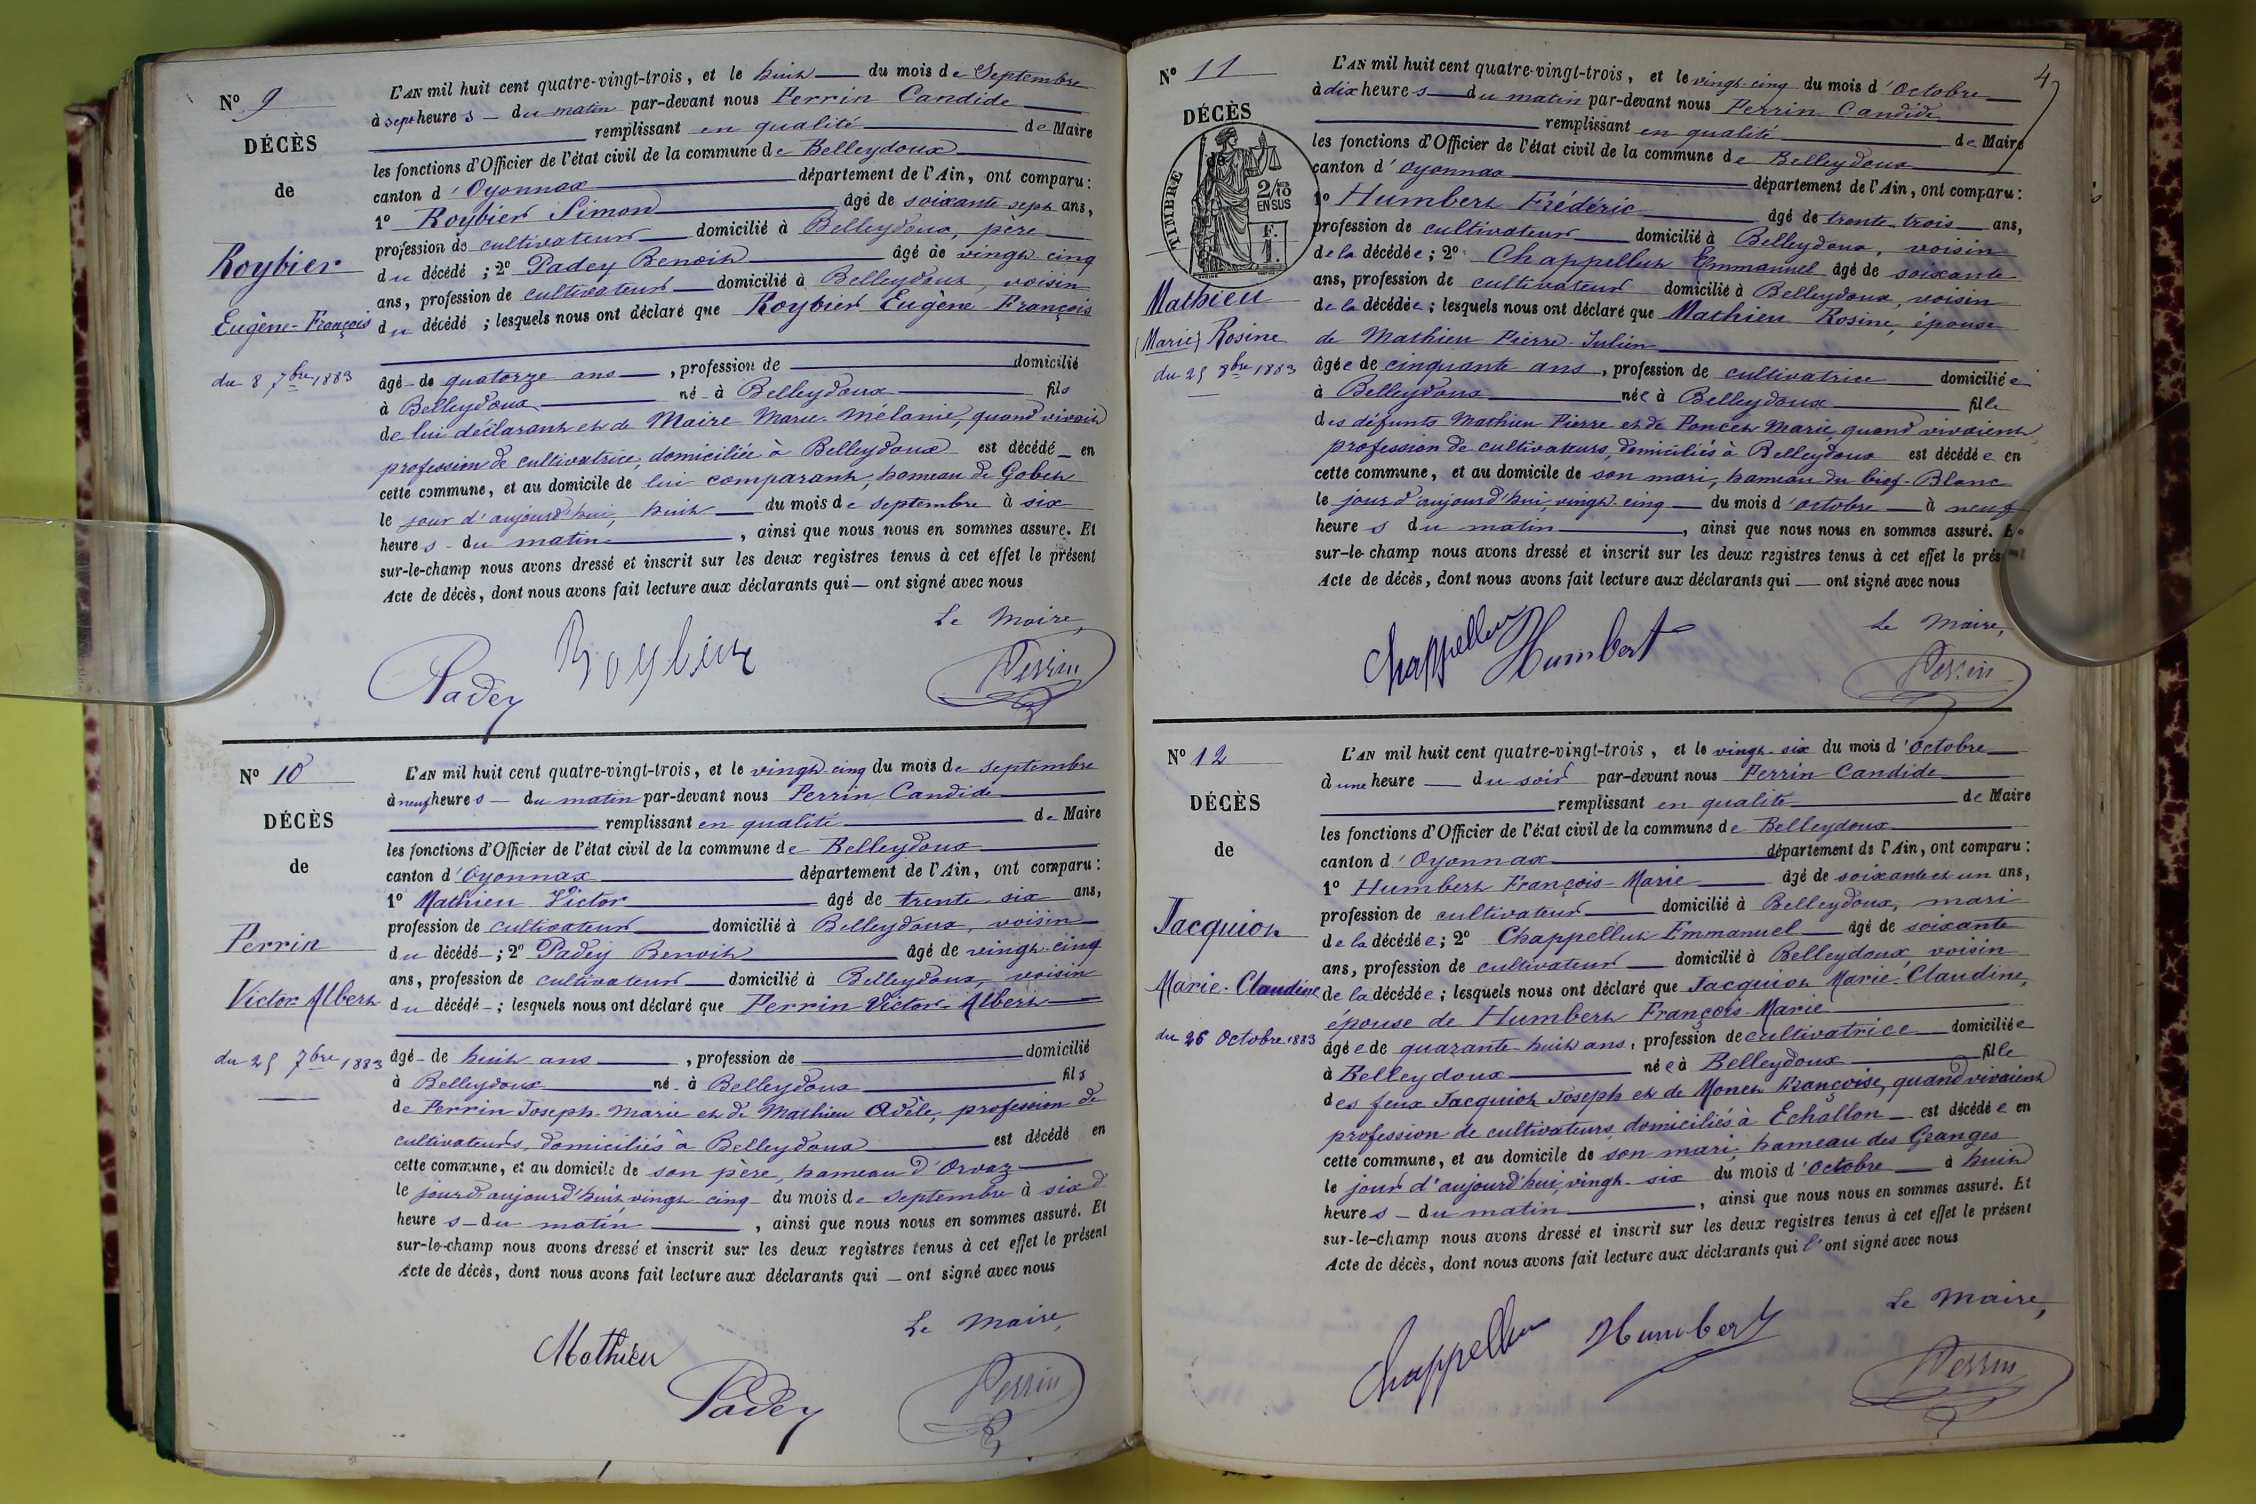 N° 9
DÉCÈS
de
Roybier
Eugène-François
du 8 7bre 1883
L'AN mil huit cent quatre-vingt-trois, et le huit du mois de Septembre
à sept heures du matin par-devant nous Perrin Candide
remplissant en qualité de Maire
les fonctions d'Officier de l'état civil de la commune de Belleydoux
canton d'Oyonnax département de l'Ain, ont comparu:
1° Roybier Simon âgé de soixante sept ans,
profession de cultivateur domicilié à Belleydoux, père
du décédé ; 2° Padey Benoit âgé de vingt cinq
ans, profession de cultivateur domicilié à Belleydoux, voisin
du décédé ; lesquels nous ont déclaré que Roybier Eugène François
âgé de quatorze ans, profession de domicilié
à Belleydoux né à Belleydoux fils
de lui déclarant et de Maire Marie Mélanie, quand vivait
profession de cultivatrice, domiciliée à Belleydoux est décédé en
cette commune, et au domicile de lui comparant, hameau de Gobet
le jour d'aujourd'hui, huit du mois de septembre à six
heures du matin, ainsi que nous nous en sommes assuré. Et
sur-le-champ nous avons dressé et inscrit sur les deux registres tenus à cet effet le présent
Acte de décès, dont nous avons fait lecture aux déclarants qui ont signé avec nous
Le Maire,
Padey Roybier Perrin
N° 10
DÉCÈS
de
Perrin
Victor Albert
du 25 7bre 1883
L'AN mil huit cent quatre-vingt-trois, et le vingt cinq du mois de septembre
à neuf heures du matin par-devant nous Perrin Candide
remplissant en qualité de Maire
les fonctions d'Officier de l'état civil de la commune de Belleydoux
canton d'Oyonnax département de l'Ain, ont comparu:
1° Mathieu Victor âgé de trente six ans,
profession de cultivateur domicilié à Belleydoux, voisin
du décédé ; 2° Padey Benoit âgé de vingt-cinq
ans, profession de cultivateur domicilié à Belleydoux, voisin
du décédé ; lesquels nous ont déclaré que Perrin Victor-Albert
âgé de huit ans, profession de domicilié
à Belleydoux né à Belleydoux fils
de Perrin Joseph-Marie et de Mathieu Adèle, profession de
cultivateurs, domiciliés à Belleydoux est décédé en
cette commune, et au domicile de son père, hameau d'Orvaz
le jour d'aujourd'hui, vingt cinq du mois de septembre à six
heures du matin, ainsi que nous nous en sommes assuré. Et
sur-le-champ nous avons dressé et inscrit sur les deux registres tenus à cet effet le présent
Acte de décès, dont nous avons fait lecture aux déclarants qui ont signé avec nous
Le Maire,
Mathieu Padey Perrin
4
N° 11
DÉCÈS
TIMBRE
2/10 EN SUS
F. 1.
Mathieu
(Marie) Rosine
du 25 8bre 1883
L'AN mil huit cent quatre-vingt-trois, et le vingt-cinq du mois d'Octobre
à dix heures du matin par-devant nous Perrin Candide
remplissant en qualité de Maire
les fonctions d'Officier de l'état civil de la commune de Belleydoux
canton d'Oyonnax département de l'Ain, ont comparu:
1° Humbert Frédéric âgé de trente trois ans,
profession de cultivateur domicilié à Belleydoux, voisin
de la décédée ; 2° Chappelluz Emmanuel âgé de soixante
ans, profession de cultivateur domicilié à Belleydoux, voisin
de la décédée ; lesquels nous ont déclaré que Mathieu Rosine, épouse
de Mathieu Pierre-Julien
âgée de cinquante ans, profession de cultivatrice domiciliée
à Belleydoux née à Belleydoux fille
des défunts Mathieu Pierre et de Poncet Marie, quand vivaient,
profession de cultivateurs, domiciliés à Belleydoux est décédée en
cette commune, et au domicile de son mari, hameau du bief-Blanc
le jour d'aujourd'hui, vingt-cinq du mois d'octobre à neuf
heures du matin, ainsi que nous nous en sommes assuré. Et
sur-le-champ nous avons dressé et inscrit sur les deux registres tenus à cet effet le présent
Acte de décès, dont nous avons fait lecture aux déclarants qui ont signé avec nous
Le Maire,
Chappelluz Humbert Perrin
N° 12
DÉCÈS
de
Jacquiot
Marie-Claudine
du 26 Octobre 1883
L'AN mil huit cent quatre-vingt-trois, et le vingt-six du mois d'Octobre
à une heure du soir par-devant nous Perrin Candide
remplissant en qualité de Maire
les fonctions d'Officier de l'état civil de la commune de Belleydoux
canton d'Oyonnax département de l'Ain, ont comparu:
1° Humbert François-Marie âgé de soixante et un ans,
profession de cultivateur domicilié à Belleydoux, mari
de la décédée ; 2° Chappelluz Emmanuel âgé de soixante
ans, profession de cultivateur domicilié à Belleydoux, voisin
de la décédée ; lesquels nous ont déclaré que Jacquiot Marie-Claudine,
épouse de Humbert François-Marie
âgée de quarante-huit ans, profession de cultivatrice domiciliée
à Belleydoux née à Belleydoux fille
des feux Jacquiot Joseph et de Monet Françoise, quand vivaient
profession de cultivateurs, domiciliés à Échallon est décédée en
cette commune, et au domicile de son mari, hameau des Granges
le jour d'aujourd'hui, vingt-six du mois d'Octobre à huit
heures du matin, ainsi que nous nous en sommes assuré. Et
sur-le-champ nous avons dressé et inscrit sur les deux registres tenus à cet effet le présent
Acte de décès, dont nous avons fait lecture aux déclarants qui l'ont signé avec nous
Le Maire,
Chappelluz Humbert Perrin